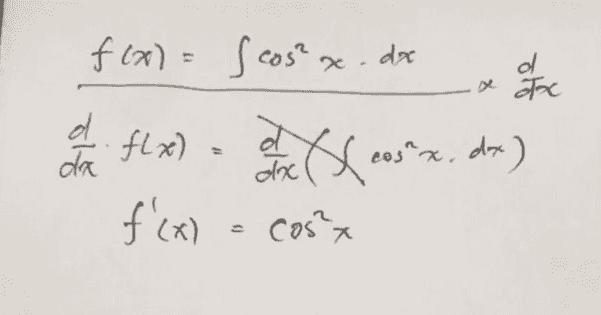 f(x) = ∫ cos² x . dx
× d/dx
d/dx . f(x) = d/dx (∫ cos² x . dx)
f'(x) = cos² x